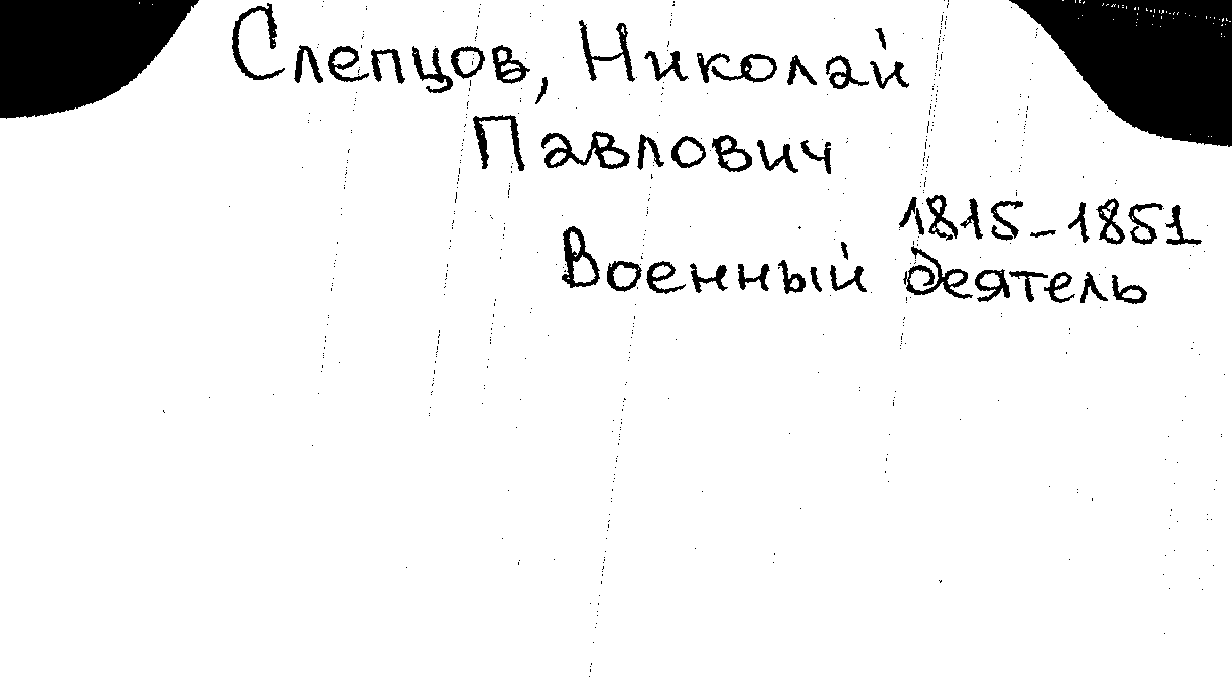 Слепцов, Николай
Павлович
1815-1851
Военный деятель